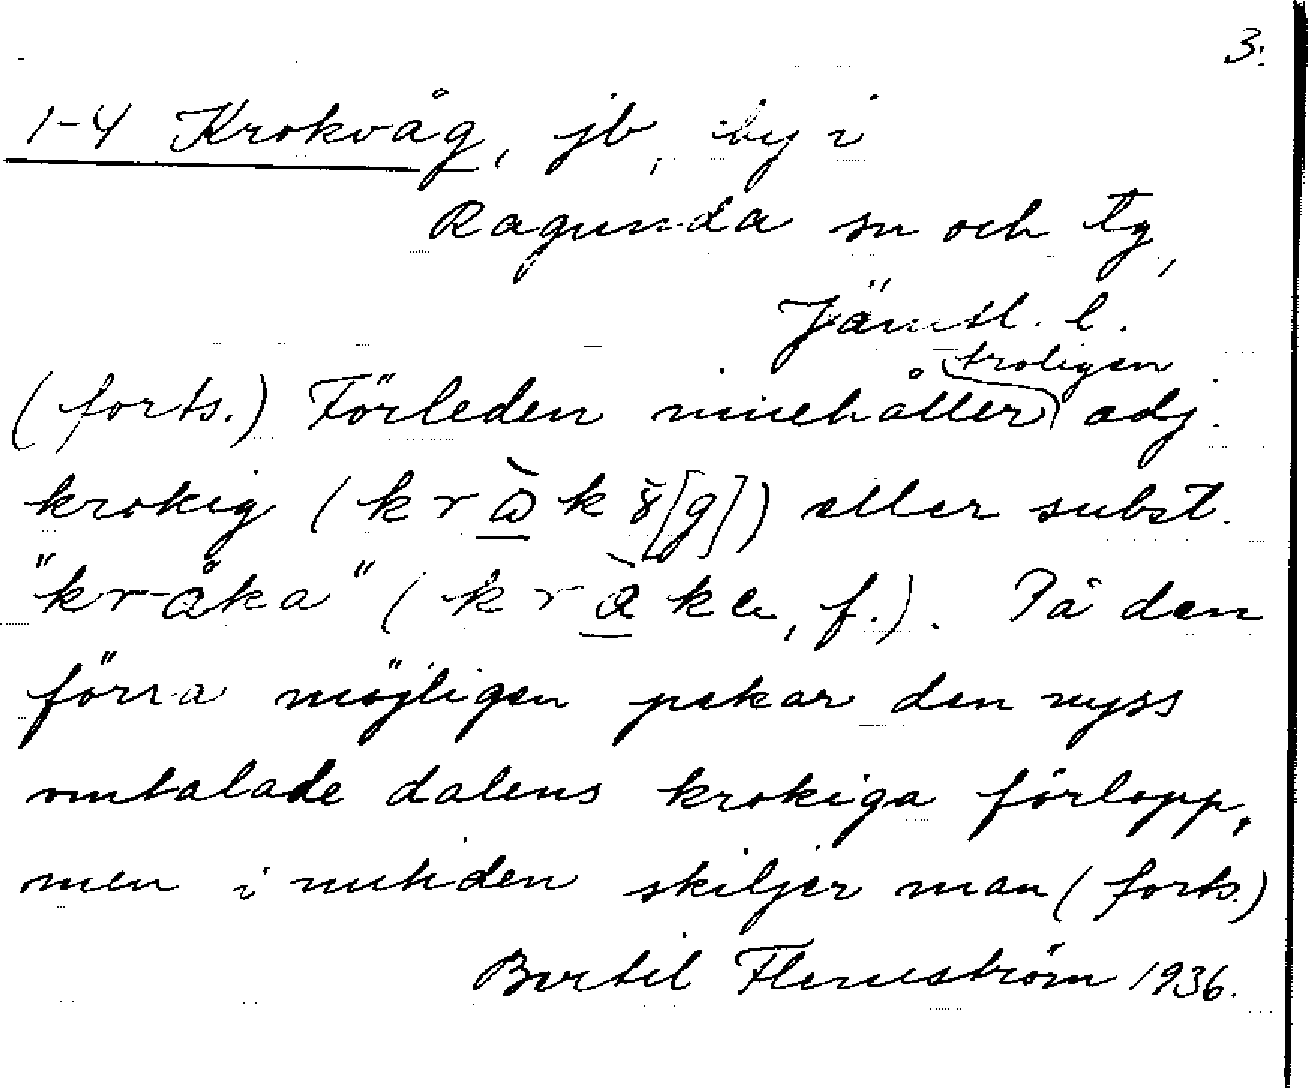 3.
1-4 Krokvåg, jb, by i
Ragunda sn och tg,
Jämtl. l.
troligen
(forts.) Förleden innehåller adj.
krokig (kr k [g]) eller subst.
"kråka" (kr k , f.). På den
förra möjligen pekar den nyss
omtalade dalens krokiga förlopp,
men i nutiden skiljer man (forts.)
Bertil Flemström 1936.